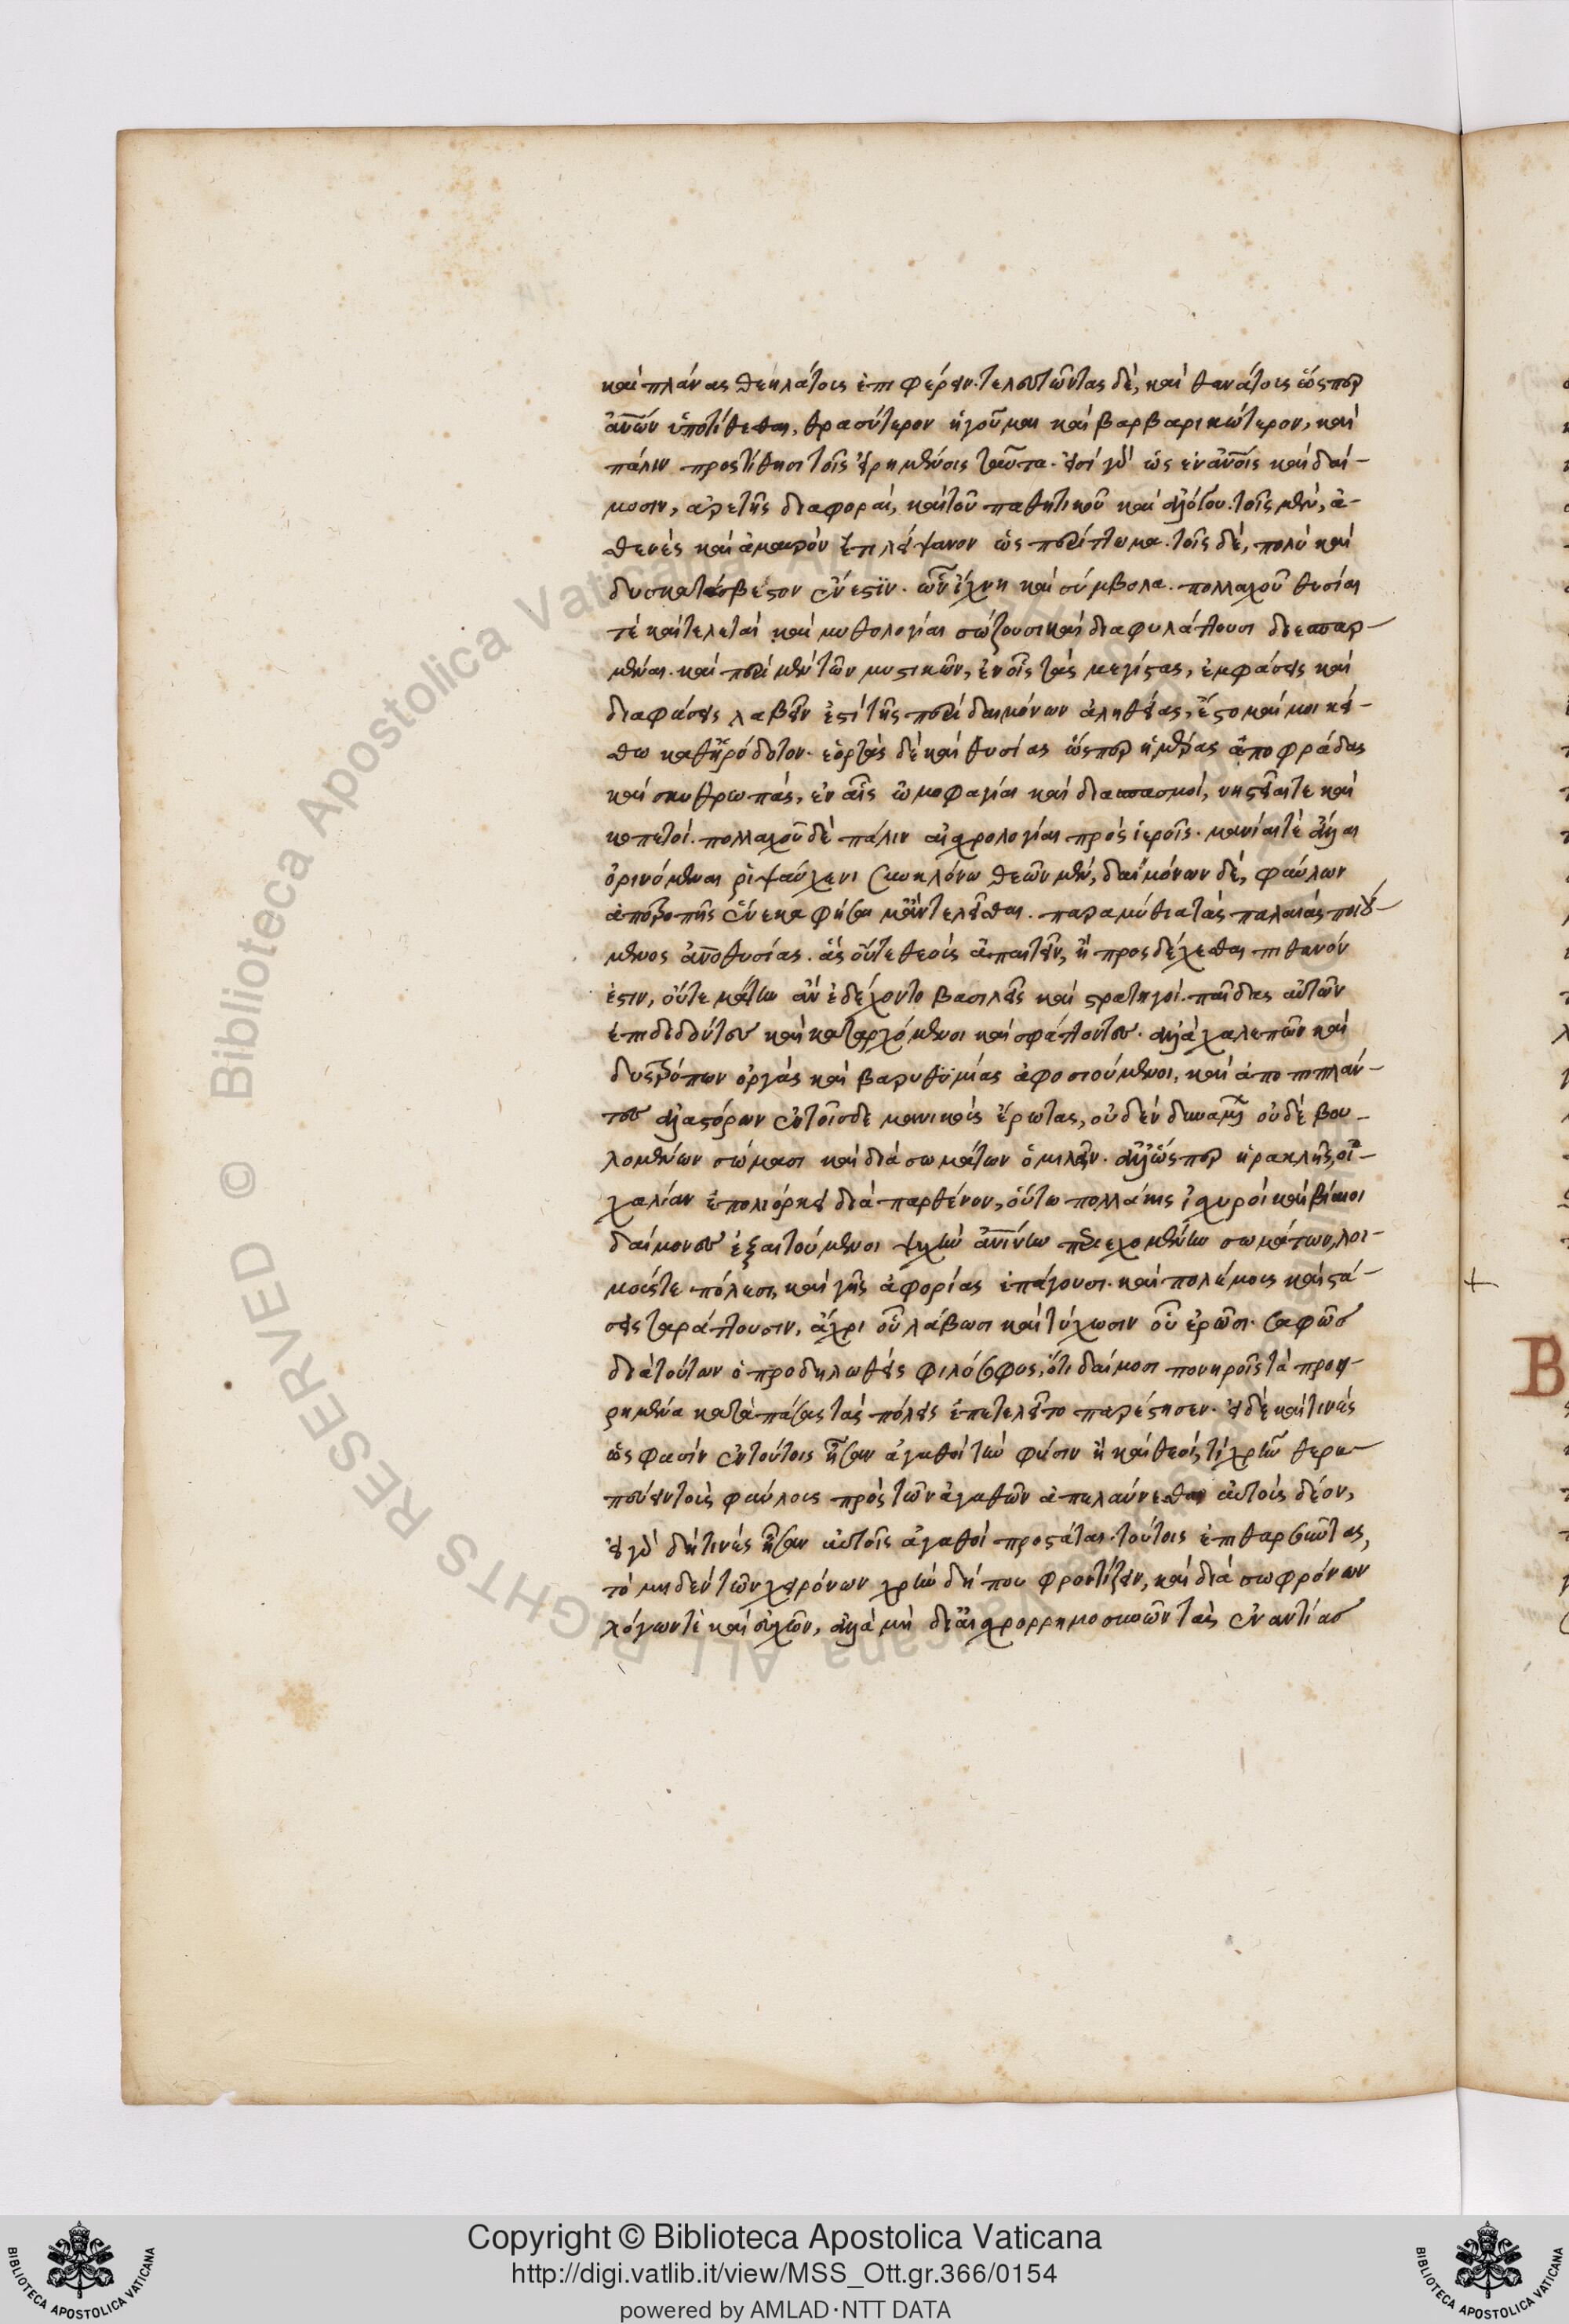 καὶ πλάνας θεηλάτοις ἐπιφέρειν. τελευτῶντας δὲ, καὶ θανάτοις ὥσπερ
ἀνῶν ὑποτίθεσθαι, θρασύτερον ἡγοῦμαι καὶ βαρβαρικώτερον, καὶ
πάλιν προστίθησι τοῖς εἰρημένοις ταῦτα. εἰσὶ γὰρ ὡς ἐν ἀνοῖς καὶ δαί-
μοσιν, ἀρετῆς διαφοραί, καὶ τοῦ παθητικοῦ καὶ ἀλόγου. τοῖς μὲν, ἀ-
σθενὲς καὶ ἀμαυρὸν ἔτι λείψανον ὡς περίττωμα. τοῖς δὲ, πολὺ καὶ
δυσκατάσβεστον ἔνεστιν. ὧν ἴχνη καὶ σύμβολα. πολλαχοῦ θυσίαι
τὲ καὶ τελεταὶ καὶ μυθολογίαι σώζουσι καὶ διαφυλάττουσι διεσπαρ-
μέναι. καὶ περὶ μὲν τῶν μυστικῶν, ἐν οἷς τὰς μεγίστας, ἐμφάσεις καὶ
διαφάσεις λαβεῖν ἐστὶ τῆς περὶ δαιμόνων ἀληθείας, εὔστομά μοι κεί-
σθω καθ' ἡρόδοτον. ἑορτὰς δὲ καὶ θυσίας ὥσπερ ἡμέρας ἀποφράδας
καὶ σκυθρωπάς, ἐν αἷς ὠμοφαγίαι καὶ διασπασμοί, νηστεῖαι τε καὶ
κοπετοί. πολλαχοῦ δὲ πάλιν αἰσχρολογίαι πρὸς ἱεροῖς. μανίαι τὲ ἄλλαι
ὀρινόμεναι ῥιψαύχενι σὺν κλόνω θεῶν μὲν, δαιμόνων δὲ, φαύλων
ἀποτροπῆς ἕνεκα φήσαιμ' ἂν τελεῖσθαι. παραμύθια τὰς παλαιὰς ποιού-
μενος ἀνοθυσίας. ἃς οὔτε θεοὺς ἀπαιτεῖν, ἢ προσδέχεσθαι πιθανόν
ἐστιν, οὔτε μάτην ἂν ἐδέχοντο βασιλεῖς καὶ στρατηγοὶ. παῖδας αὐτῶν
ἐπιδιδόντες καὶ καταρχόμενοι καὶ σφάττοντες. ἀλλὰ χαλεπῶν καὶ
δυστρόπων ὀργὰς καὶ βαρυθυμίας ἀφοσιούμενοι, καὶ ἀποπιπλάν-
τες ἀλαστόρων ἐν τοῖσδε μανικοὺς ἔρωτας, οὐδὲν δυναμένων οὐδὲ βου-
λομένων σώμασι καὶ διὰ σωμάτων ὁμιλεῖν. ἀλλ' ὥσπερ ἡρακλῆς, οἰ-
χαλίαν ἐπολιόρκει διὰ παρθένον, οὕτω πολλάκις ἰσχυροὶ καὶ βίαιοι
δαίμονες ἐξαιτούμενοι ψυχὴν ἀνίνην περιεχομένην σωμάτων, λοι-
μούς τε πόλεσι, καὶ γῆς ἀφορίας ἐπάγουσι. καὶ πολέμους καὶ στά-
σεις ταράττουσιν, ἄχρι οὗ λάβωσι καὶ τύχωσιν οὗ ἐρῶσι. σαφῶς
διὰ τούτων ὁ προδηλωθεὶς φιλόσοφος, ὅτι δαίμοσι πονηροῖς τὰ προει-
ρημένα κατὰ πάσας τὰς πόλεις ἐπετελεῖτο παρέστησεν. εἰ δὲ καὶ τινὲς
ὡς φασὶν ἐν τούτοις ἦσαν ἀγαθοὶ τὴν φύσιν ἢ καὶ θεοὶ, τί χρῆν θερα-
πεύειν τοὺς φαύλους πρὸς τῶν ἀγαθῶν ἀπελαύνεσθαι αὐτοὺς δέον,
εἰ γὰρ δὴ τινὲς ἦσαν αὐτοῖς ἀγαθοὶ προστάται. τούτοις ἐπιθαρσοῦντας,
τὸ μηδὲν τῶν χειρόνων χρῆν δήπου φροντίζειν, καὶ διὰ σωφρόνων
λόγων τὲ καὶ εὐχῶν, ἀλλὰ μὴ δι' αἰσχρορρημοσυνῶν τὰς ἐναντίας
Β
Copyright © Biblioteca Apostolica Vaticana
http://digi.vatlib.it/view/MSS_Ott.gr.366/0154
powered by AMLAD·NTT DATA